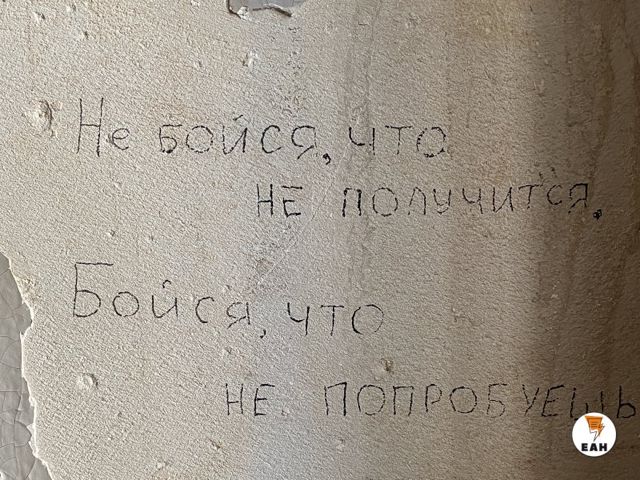 Не бойся, что
не получится.
Бойся, что
не попробуешь
ЕАН